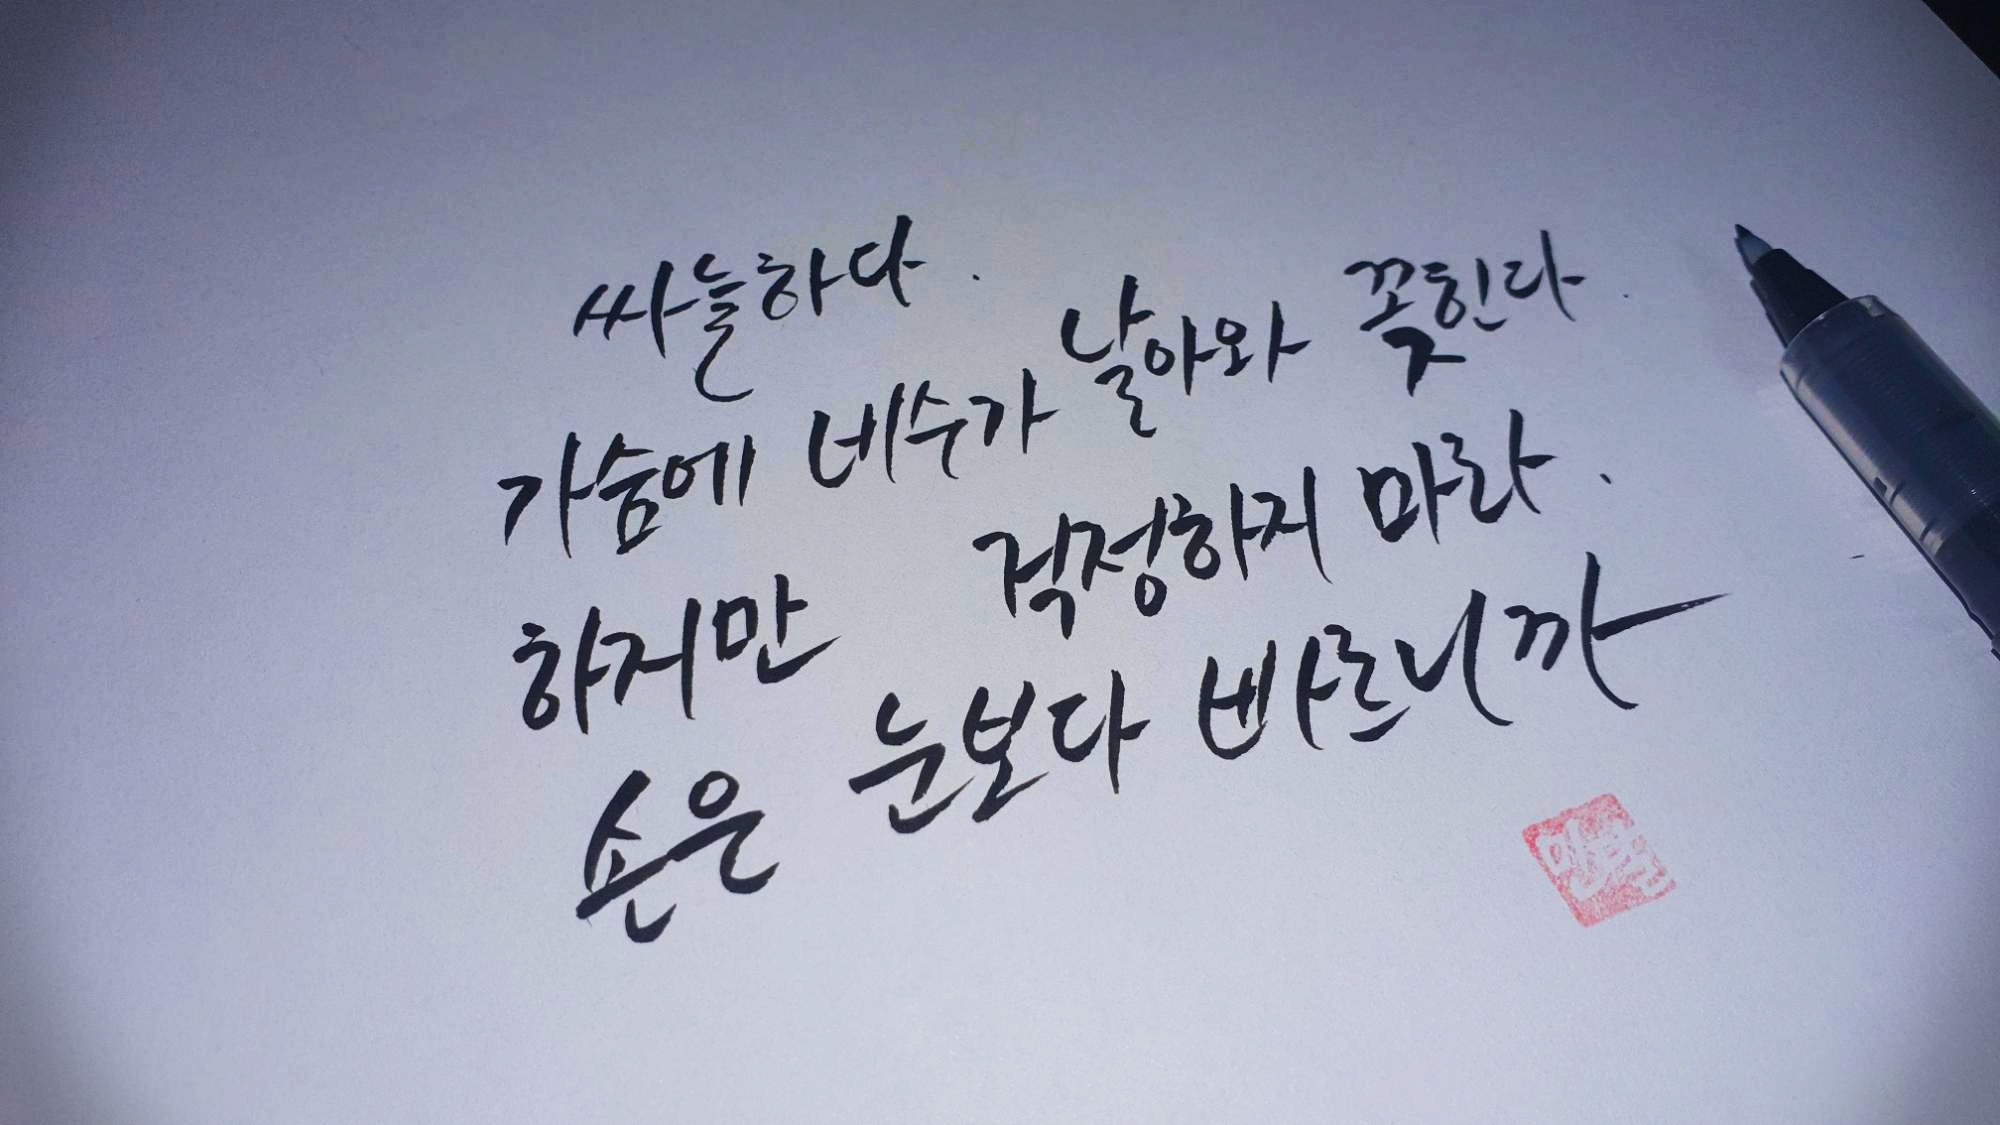 싸늘하다.
가슴에 비수가 날아와 꽂힌다.
하지만 걱정하지 마라.
손은 눈보다 빠르니까